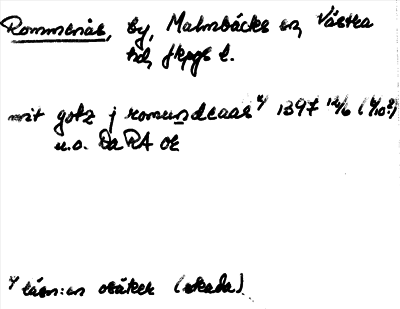 Rommenås, by, Malmbäcks sn, Västra
hd, Jkpgs l.
mit gotz j romundcaas 1) 1397 12/6 (4/10?)
u.o. Da RA OE
1) läsn:en osäker (skada).